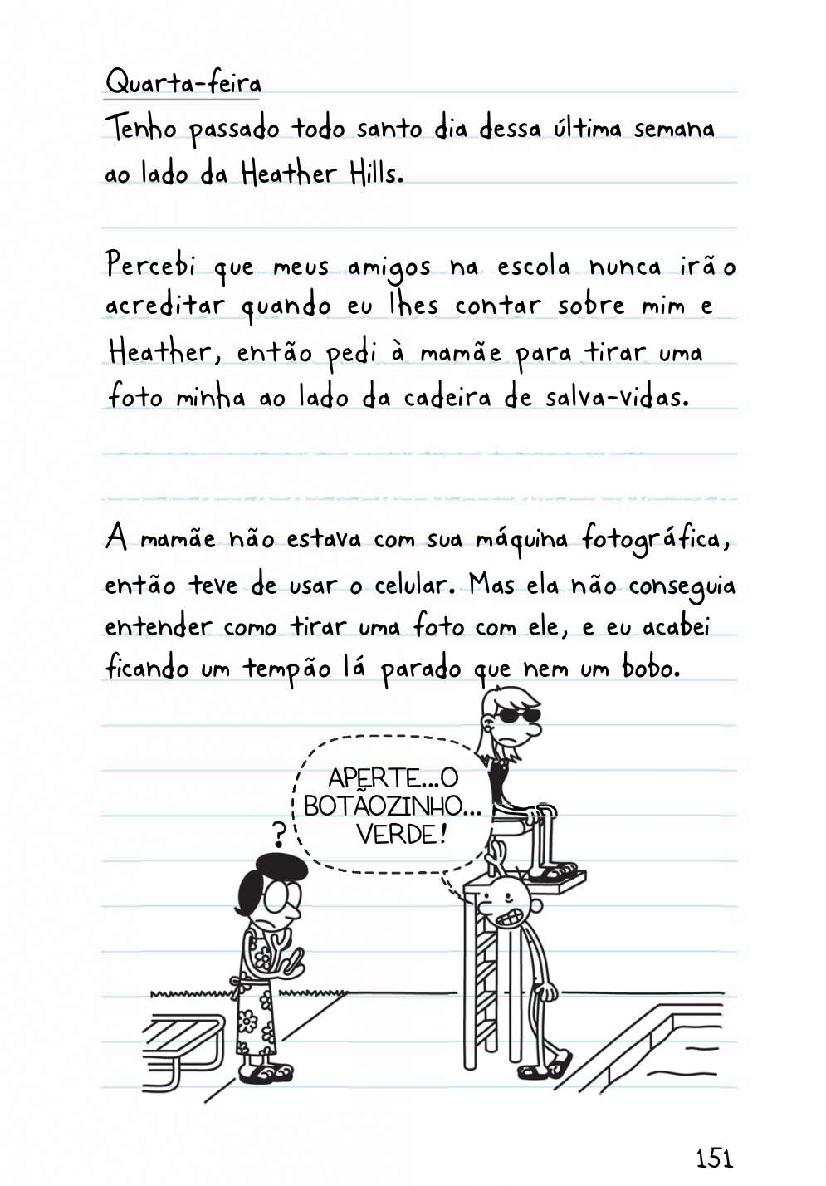 Quarta-feira
Tenho passado todo santo dia dessa última semana
ao lado da Heather Hills.
Percebi que meus amigos na escola nunca irão
acreditar quando eu lhes contar sobre mim e
Heather, então pedi à mamãe para tirar uma
foto minha ao lado da cadeira de salva-vidas.
A mamãe não estava com sua máquina fotográfica,
então teve de usar o celular. Mas ela não conseguia
entender como tirar uma foto com ele, e eu acabei
ficando um tempão lá parado que nem um bobo.
APERTE...O
BOTÃOZINHO...
VERDE!
?
151